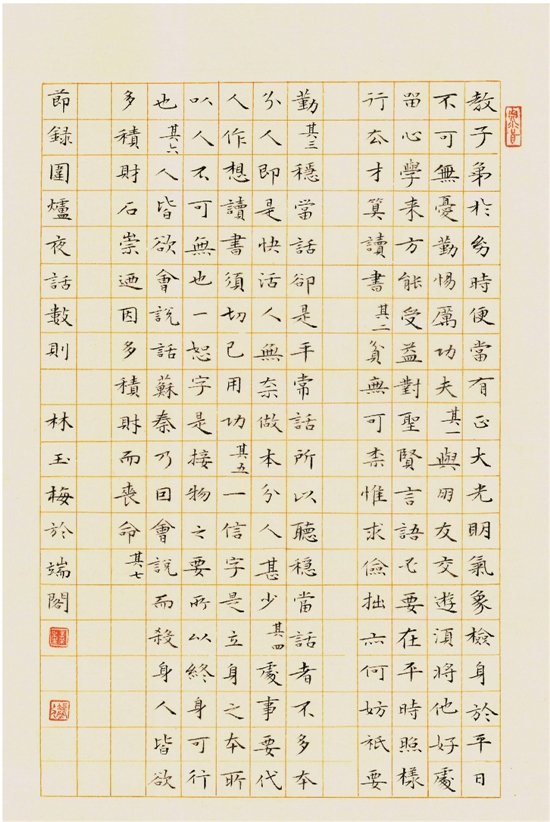 教子弟於幼時便當有正大光明氣象檢身於平日
不可無憂勤惕厲功夫其一與朋友交遊須將他好處
留心學来方能受益對聖賢言語必要在平時照樣
行去才算讀書其二貧無可柰惟求儉拙亦何妨衹要
勤其三穩當話卻是平常話所以聽穩當話者不多本
分人即是快活人無奈做本分人甚少其四處事要代
人作想讀書須切己用功其五一信字是立身之本所
以人不可無也一恕字是接物之要所以終身可行
也其六人皆欲會說話蘇秦乃因會說而殺身人皆欲
多積財石崇迺因多積財而喪命其七
節錄圍爐夜話數則 林玉梅於端閣